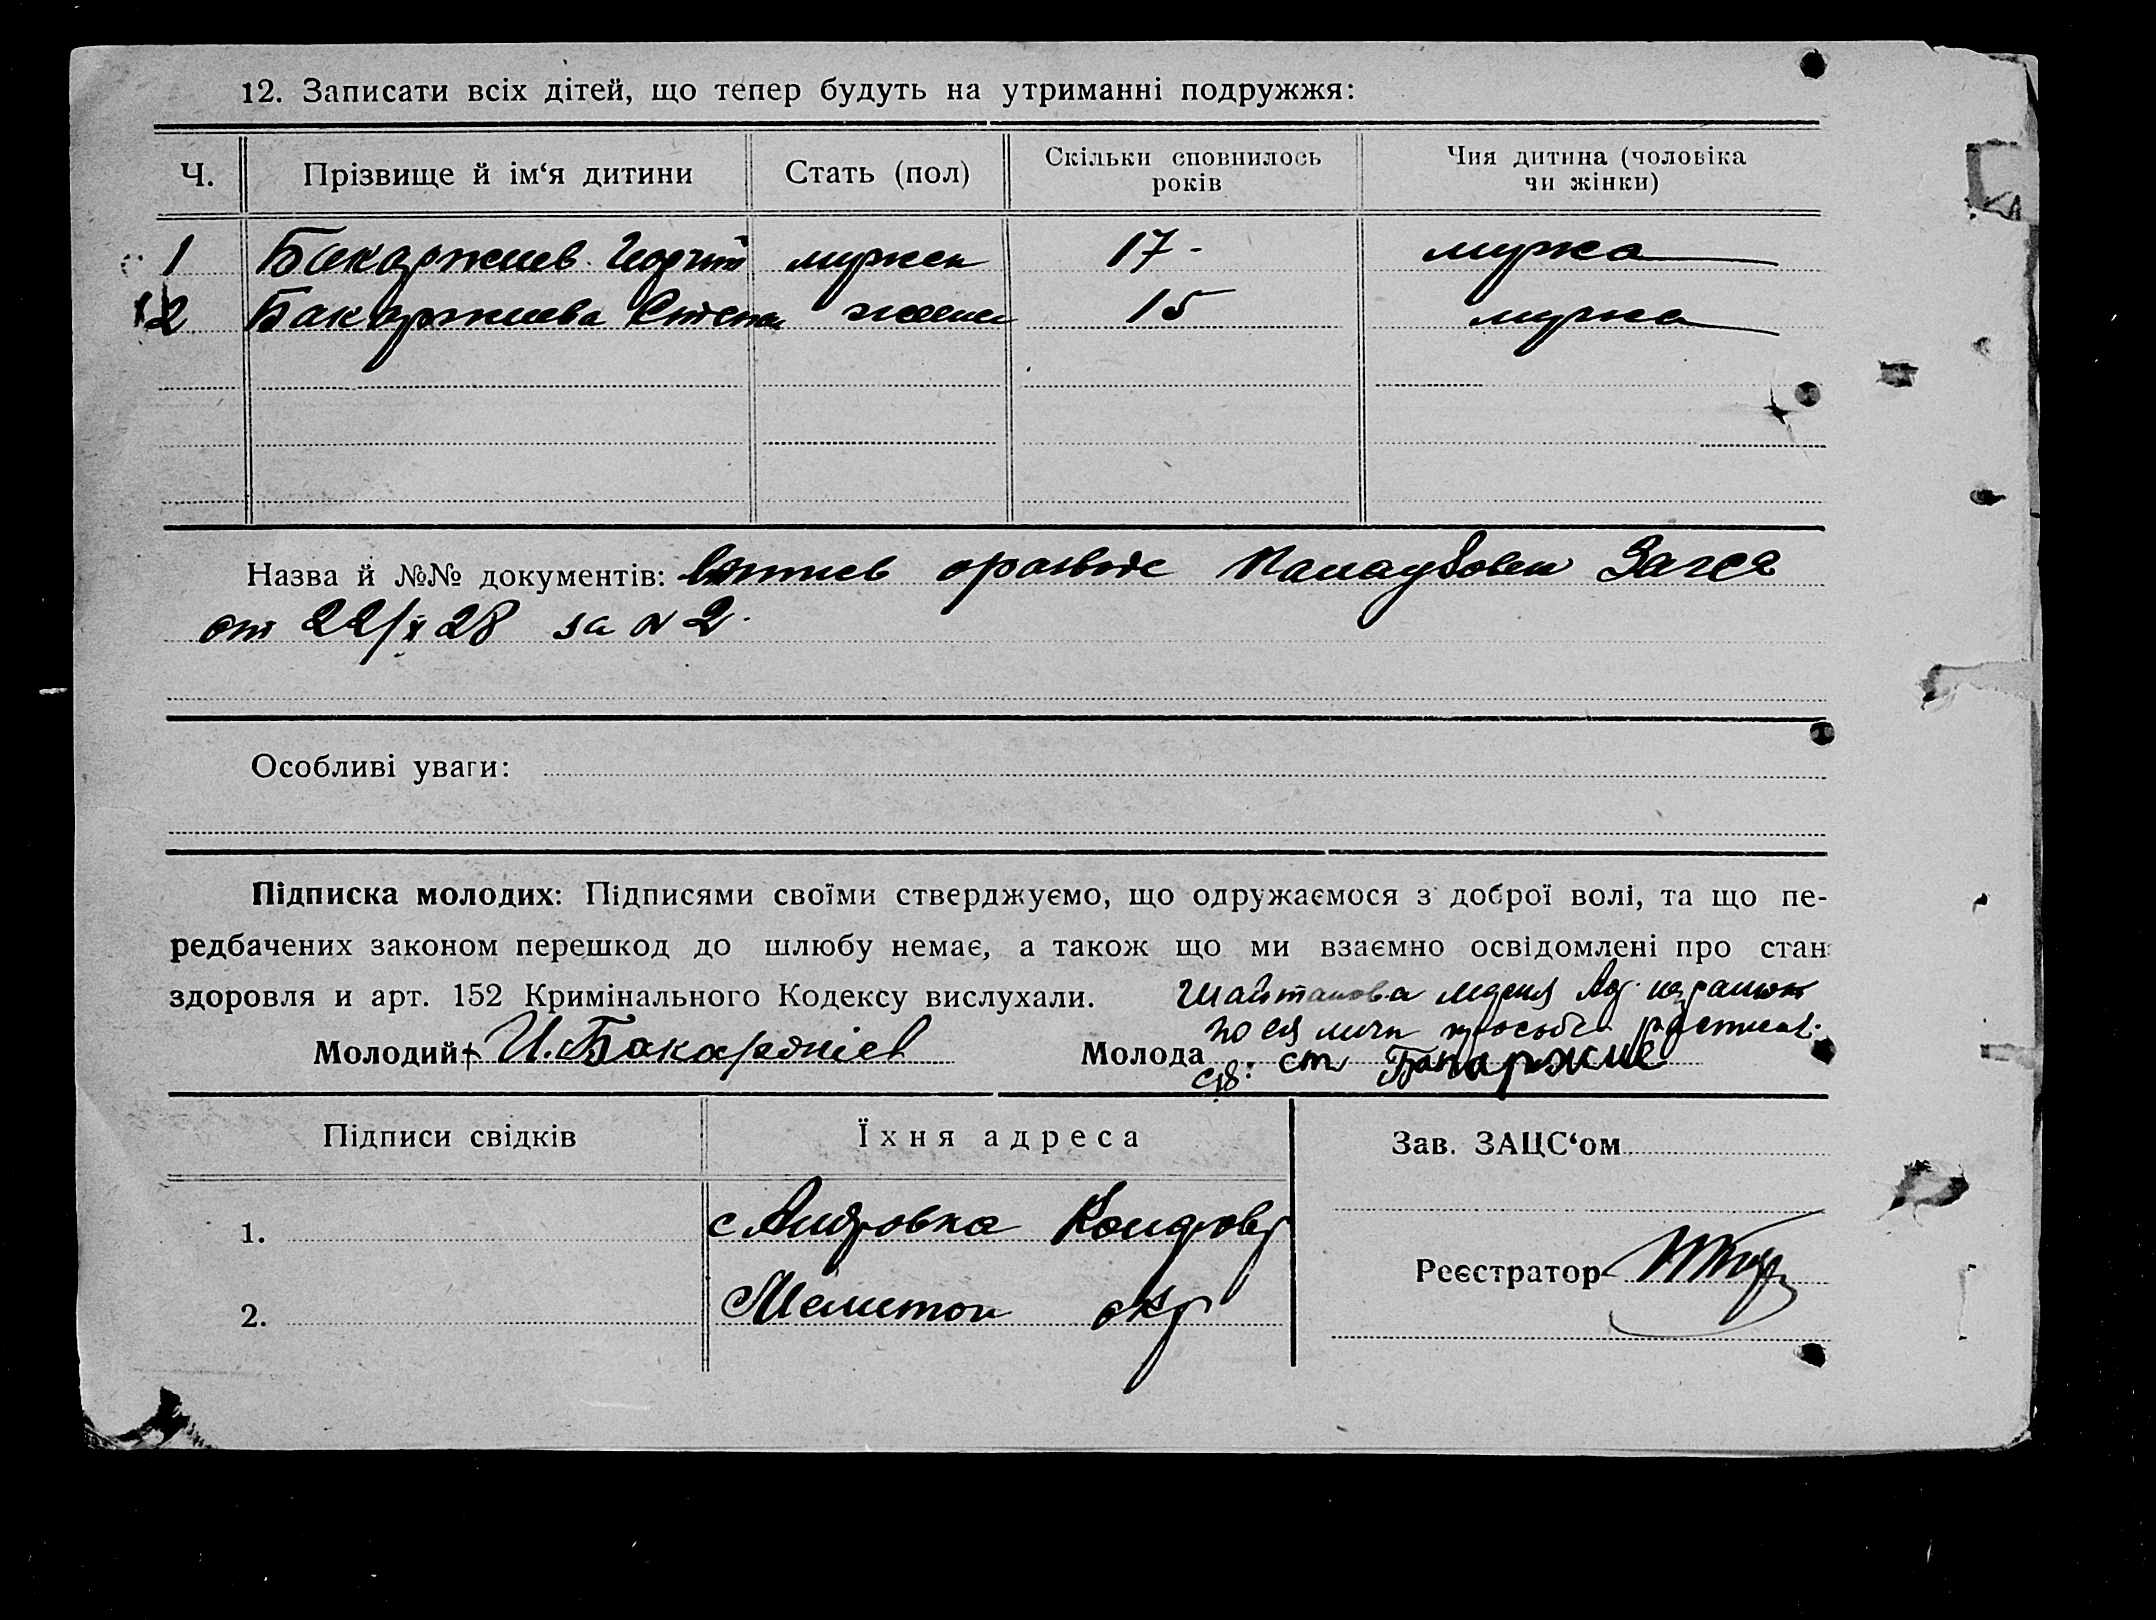 12. Записати всіх дітей, що тепер будуть на утриманні подружжя:
Ч. Прізвище й ім‘я дитини Стать (пол) Скільки сповнилось років Чия дитина (чоловіка чи жінки)
1 Бакаржиев Георгий мужск 17 - мужа
2 Бакаржиева женск 15 мужа
Назва й №№ документів: Загса
от 22/X 28 за № 2.
Особливі уваги:
Підписка молодих: Підписями своїми стверджуємо, що одружаємося з доброї волі, та що пе-
редбачених законом перешкод до шлюбу немає, а також що ми взаємно освідомлені про стан
здоровля и арт. 152 Кримінального Кодексу вислухали. Шайтанова Мария
по ея личн просьбе
Молодий + И. Бакаржиев Молода
Підписи свідків Їхня адреса Зав. ЗАЦС‘ом
1. с Андровка
Реєстратор
2. Мелитоп окр